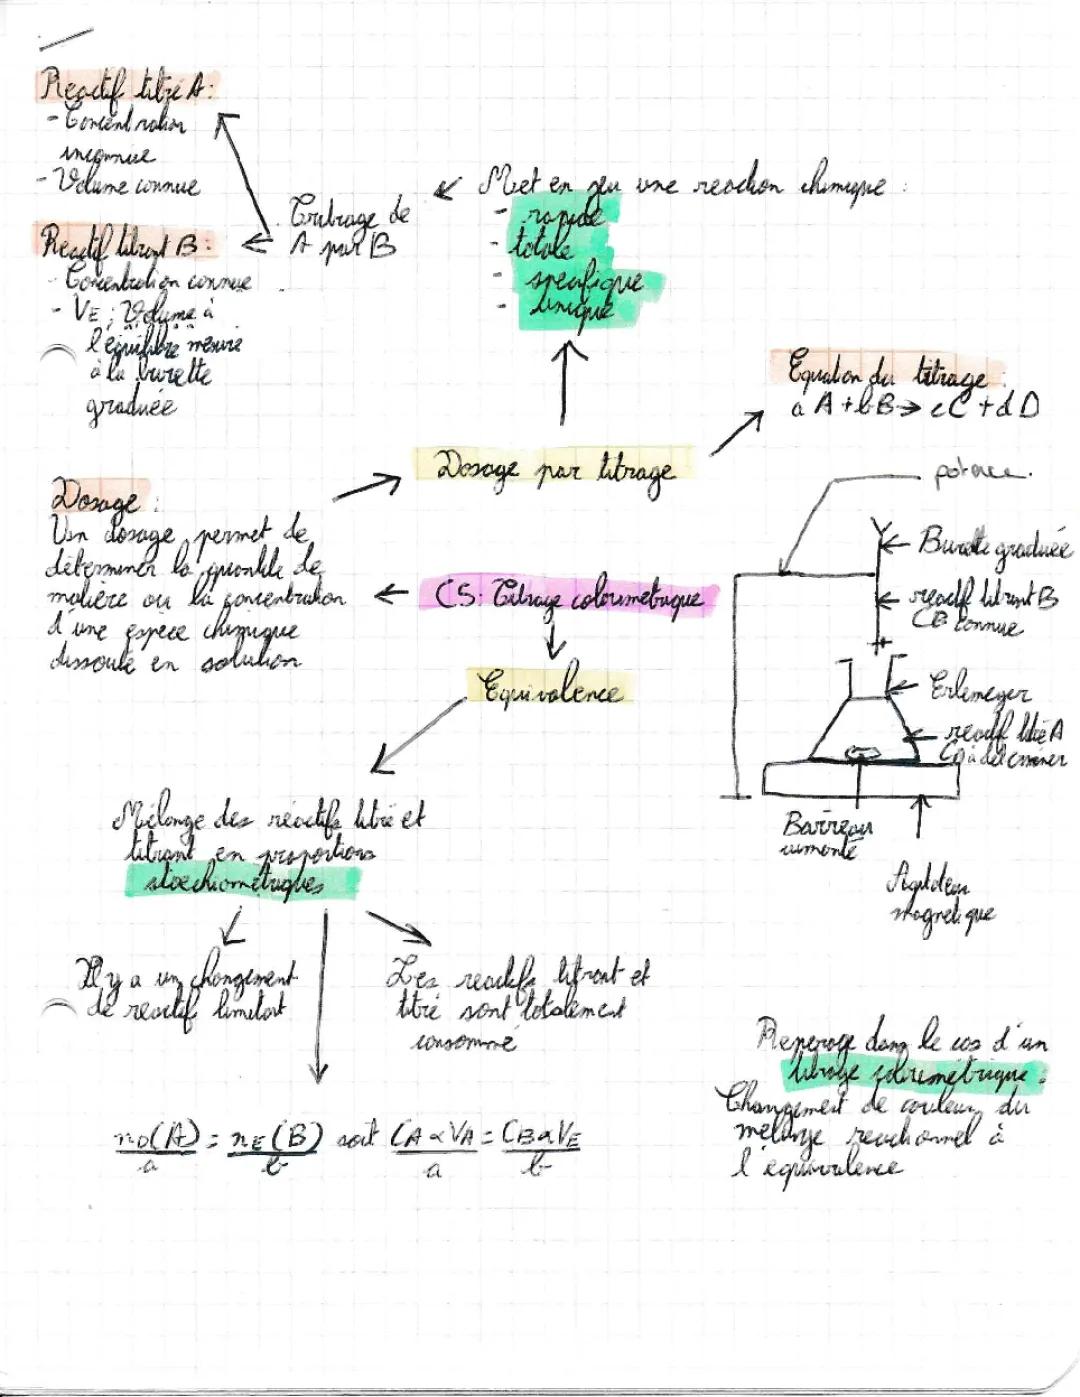 Reactif titré A:
- Concentration
inconnue
- Volume connue
Reactif titrant B:
- Concentration connue
- VE : Volume à
l'équilibre mesure
à la burette
graduée
Titrage de
A par B
Met en jeu une reaction chimique :
- rapide
- totale
- specifique
- unique
Equation du titrage :
a A + b B → c C + d D
Dosage par titrage
Dosage :
Un dosage permet de
déterminer la quantité de
matière ou la concentration
d'une espèce chimique
dissoute en solution
C5: Titrage colorimetrique
Equivalence
potence.
Burette graduée
reactif titrant B
CB connue
Erlemeyer
reactif titré A
CA à determiner
Barreau
aimanté
Agitateur
magnetique
Mélange des réactifs titré et
titrant en proportions
stoechiométriques
Il y a un changement
de reactif limitant
Les reactifs titrant et
titré sont totalement
consommé
n0(A)/a = nE(B)/b soit CA x VA/a = CB x VE/b
Reperage dans le cas d'un
titrage colorimétrique :
Changement de couleur du
mélange reactionnel à
l'equivalence